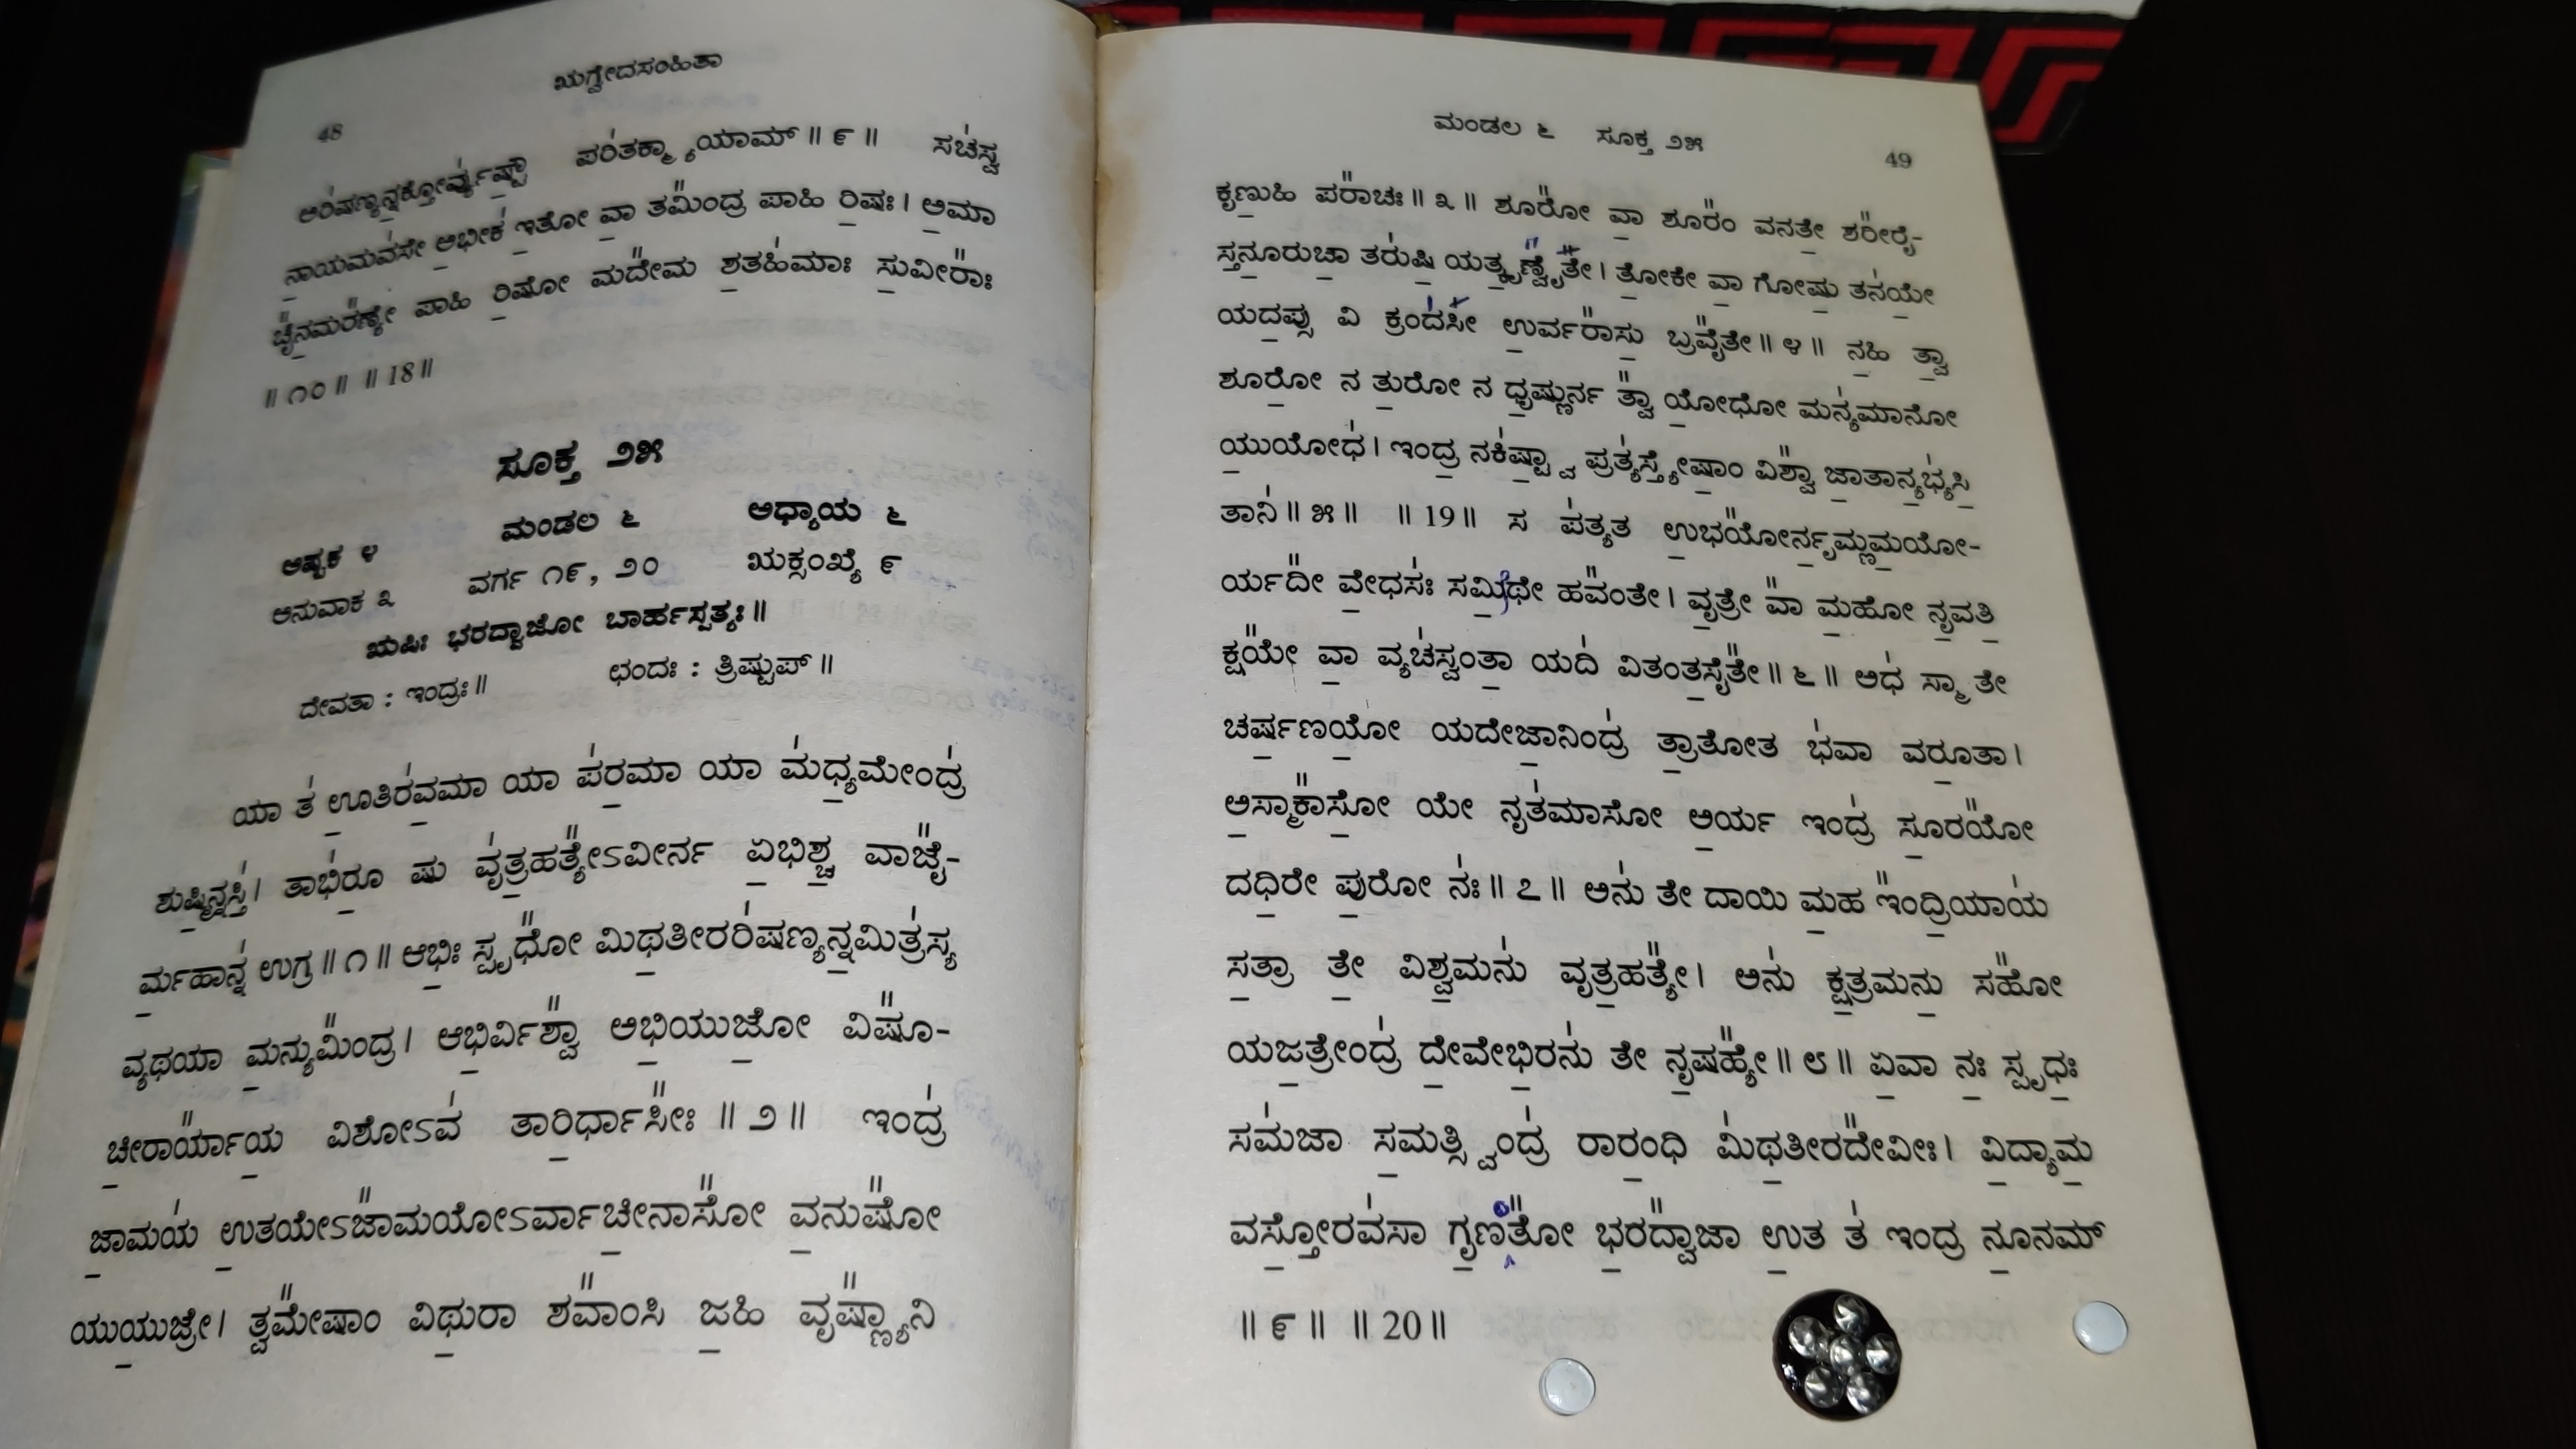 48
ಋಗ್ವೇದಸಂಹಿತಾ
ಅರಿ॑ಷಣ್ಯ॒ನ್ನಕ್ತೋ॒ರ್ವ್ಯು॑ಷ್ಟೌ॒ ಪರಿ॑ತಕ್ಮ್ಯಾ॒ಯಾಮ್ ॥ ೯ ॥ ಸಚ॑ಸ್ವ
ನಾ॒ಯಮವ॑ಸೇ ಅ॒ಭೀಕ॑ ಇ॒ತೋ ವಾ॒ ತಮಿ᳚ಂದ್ರ ಪಾಹಿ ರಿ॒ಷಃ । ಅ॒ಮಾ
ಚೈ᳚ನ॒ಮರ᳚ಣ್ಯೇ ಪಾಹಿ ರಿ॒ಷೋ ಮದೇ᳚ಮ ಶ॒ತಹಿ॑ಮಾಃ ಸು॒ವೀರಾಃ᳚
॥ ೧೦ ॥ ॥ 18 ॥
ಸೂಕ್ತ ೨೫
ಅಷ್ಟಕ ೪ ಮಂಡಲ ೬ ಅಧ್ಯಾಯ ೬
ಅನುವಾಕ ೩ ವರ್ಗ ೧೯, ೨೦ ಋಕ್ಸಂಖ್ಯೆ ೯
ಋಷಿಃ ಭರದ್ವಾಜೋ ಬಾರ್ಹಸ್ಪತ್ಯಃ ॥
ದೇವತಾ : ಇಂದ್ರಃ ॥ ಛಂದಃ : ತ್ರಿಷ್ಟುಪ್ ॥
ಯಾ ತ॑ ಊ॒ತಿರ॑ವ॒ಮಾ ಯಾ ಪ॑ರ॒ಮಾ ಯಾ ಮ॑ಧ್ಯ॒ಮೇಂದ್ರ॑
ಶುಷ್ಮಿ॒ನ್ನಸ್ತಿ॑ । ತಾಭಿ॑ರೂ॒ ಷು ವೃ॑ತ್ರ॒ಹತ್ಯೇ᳚ಽವೀರ್ನ ಏ॒ಭಿಶ್ಚ॒ ವಾಜೈ᳚-
ರ್ಮ॒ಹಾನ್ನ॑ ಉಗ್ರ ॥ ೧ ॥ ಆಭಿಃ॒ ಸ್ಪೃಧೋ᳚ ಮಿಥ॒ತೀರರಿ॑ಷಣ್ಯನ್ನ॒ಮಿತ್ರ॑ಸ್ಯ
ವ್ಯಥಯಾ ಮ॒ನ್ಯುಮಿ᳚ಂದ್ರ । ಆಭಿ॒ರ್ವಿಶ್ವಾ᳚ ಅಭಿ॒ಯುಜೋ॒ ವಿಷೂ᳚-
ಚೀ॒ರಾರ್ಯಾ᳚ಯ॒ ವಿಶೋಽವ॑ ತಾರಿ॒ರ್ದಾಸೀಃ᳚ ॥ ೨ ॥ ಇಂದ್ರ॑
ಜಾ॒ಮಯ॑ ಉ॒ತಯೇಽಜಾ᳚ಮಯೋಽರ್ವಾಚೀ॒ನಾಸೋ᳚ ವ॒ನುಷೋ᳚
ಯುಯು॒ಜ್ರೇ । ತ್ವಮೇ᳚ಷಾಂ ವಿಥು॒ರಾ ಶವಾ᳚ಂಸಿ ಜ॒ಹಿ ವೃಷ್ಣ್ಯಾ᳚ನಿ
ಮಂಡಲ ೬ ಸೂಕ್ತ ೨೫
49
ಕೃಣು॒ಹಿ ಪರಾ᳚ಚಃ ॥ ೩ ॥ ಶೂರೋ᳚ ವಾ॒ ಶೂರಂ᳚ ವನತೇ॒ ಶರೀ᳚ರೈ-
ಸ್ತನೂ॒ರುಚಾ॒ ತರು॑ಷಿ॒ ಯತ್ಕೃ॒ಣ್ವೈತೇ᳚ । ತೋ॒ಕೇ ವಾ॒ ಗೋಷು॒ ತನ॑ಯೇ॒
ಯದ॒ಪ್ಸು ವಿ ಕ್ರಂದ॑ಸೀ ಉ॒ರ್ವರಾ᳚ಸು॒ ಬ್ರವೈ᳚ತೇ ॥ ೪ ॥ ನ॒ಹಿ ತ್ವಾ॒
ಶೂರೋ॒ ನ ತು॒ರೋ ನ ಧೃ॒ಷ್ಣುರ್ನ ತ್ವಾ᳚ ಯೋ॒ಧೋ ಮನ್ಯ॑ಮಾನೋ
ಯು॒ಯೋಧ॑ । ಇಂದ್ರ॒ ನಕಿ॑ಷ್ಟ್ವಾ॒ ಪ್ರತ್ಯ॑ಸ್ತ್ಯೇಷಾಂ॒ ವಿಶ್ವಾ᳚ ಜಾ॒ತಾನ್ಯ॒ಭ್ಯ॑ಸಿ॒
ತಾನಿ॑ ॥ ೫ ॥ ॥ 19 ॥ ಸ ಪ॑ತ್ಯತ ಉ॒ಭಯೋ᳚ರ್ನೃ॒ಮ್ಣಮ॒ಯೋ-
ರ್ಯದೀ᳚ ವೇ॒ಧಸಃ॑ ಸಮಿ॒ಥೇ ಹವ᳚ಂತೇ । ವೃ॒ತ್ರೇ ವಾ᳚ ಮ॒ಹೋ ನೃ॒ವತಿ॒
ಕ್ಷಯೇ᳚ ವಾ॒ ವ್ಯಚ॑ಸ್ವಂತಾ॒ ಯದಿ॑ ವಿತಂತ॒ಸೈತೇ᳚ ॥ ೬ ॥ ಅಧ॑ ಸ್ಮಾ ತೇ
ಚರ್ಷ॒ಣಯೋ॒ ಯದೇಜಾ॒ನಿಂದ್ರ॑ ತ್ರಾ॒ತೋತ ಭ॑ವಾ ವರೂ॒ತಾ ।
ಅ॒ಸ್ಮಾಕಾ᳚ಸೋ॒ ಯೇ ನೃತ॑ಮಾಸೋ ಅ॒ರ್ಯ ಇಂದ್ರ॑ ಸೂ॒ರಯೋ᳚
ದಧಿ॒ರೇ ಪು॒ರೋ ನಃ॑ ॥ ೭ ॥ ಅನು॑ ತೇ ದಾಯಿ ಮ॒ಹ ಇ᳚ಂದ್ರಿ॒ಯಾಯ॑
ಸ॒ತ್ರಾ ತೇ॒ ವಿಶ್ವ॒ಮನು॑ ವೃತ್ರ॒ಹತ್ಯೇ᳚ । ಅನು॑ ಕ್ಷ॒ತ್ರಮನು॒ ಸಹೋ᳚
ಯಜ॒ತ್ರೇಂದ್ರ॑ ದೇ॒ವೇಭಿ॒ರನು॑ ತೇ ನೃ॒ಷಹ್ಯೇ᳚ ॥ ೮ ॥ ಏ॒ವಾ ನಃ॒ ಸ್ಪೃಧಃ॒
ಸಮ॑ಜಾ ಸ॒ಮತ್ಸ್ವಿಂದ್ರ॑ ರಾರಂ॒ಧಿ ಮಿ॑ಥ॒ತೀರದೇ᳚ವೀಃ । ವಿ॒ದ್ಯಾಮ॒
ವಸ್ತೋ॒ರವ॑ಸಾ ಗೃ॒ಣಂತೋ᳚ ಭ॒ರದ್ವಾ᳚ಜಾ ಉ॒ತ ತ॑ ಇಂದ್ರ ನೂ॒ನಮ್
॥ ೯ ॥ ॥ 20 ॥